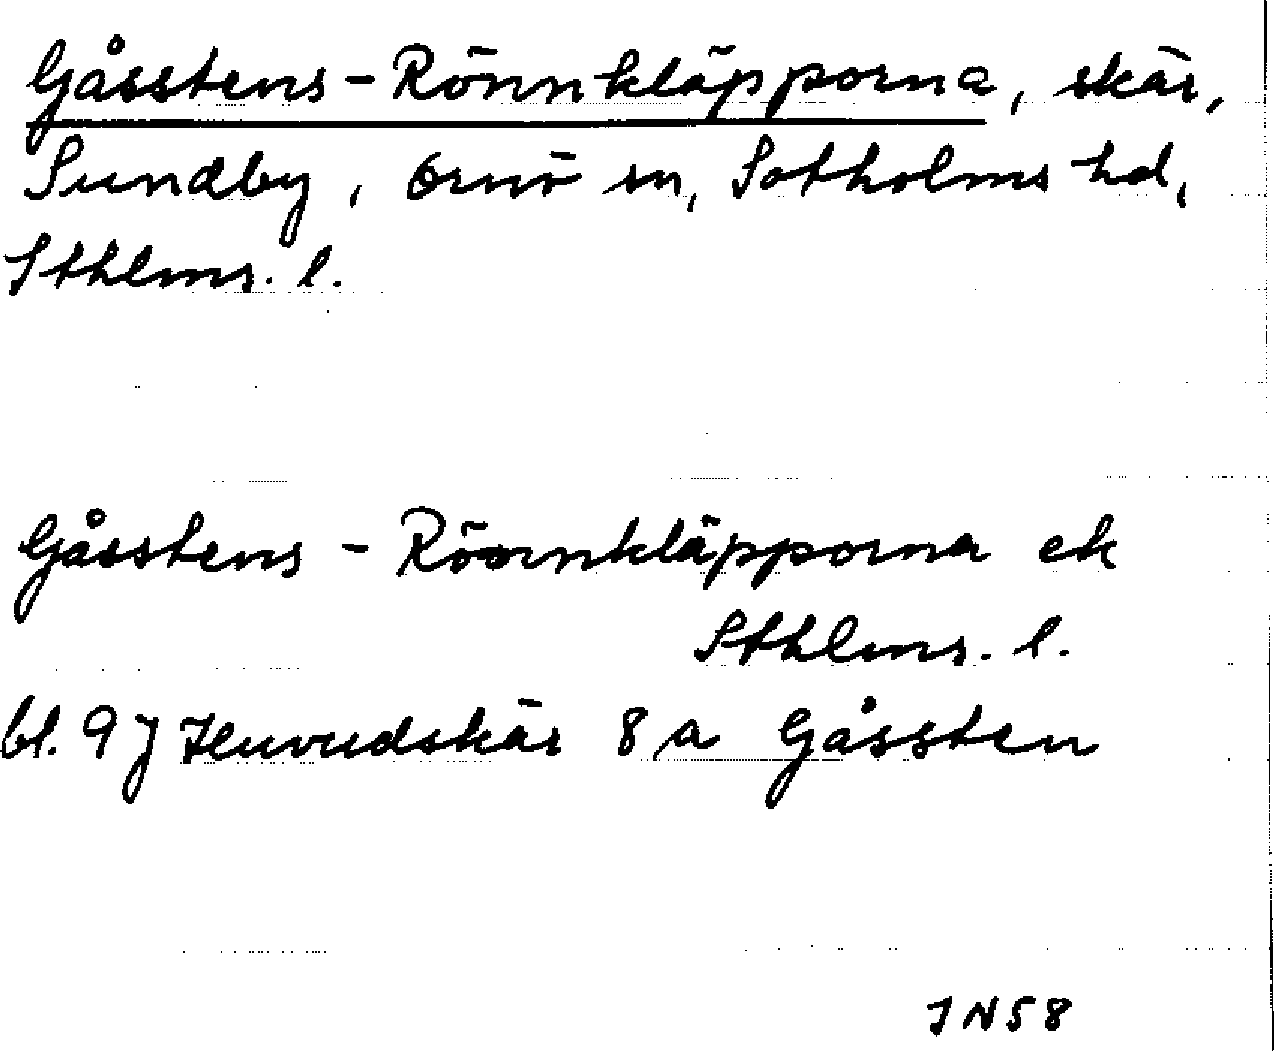 Gåsstens-Rönnkläpporna, skär,
Sundby, Ornö sn, Sotholms hd,
Sthlms. l.
Gåsstens - Rönnkläpporna ek
Sthlms. l.
bl. 9 J Huvudskär 8 a Gåssten
JN58